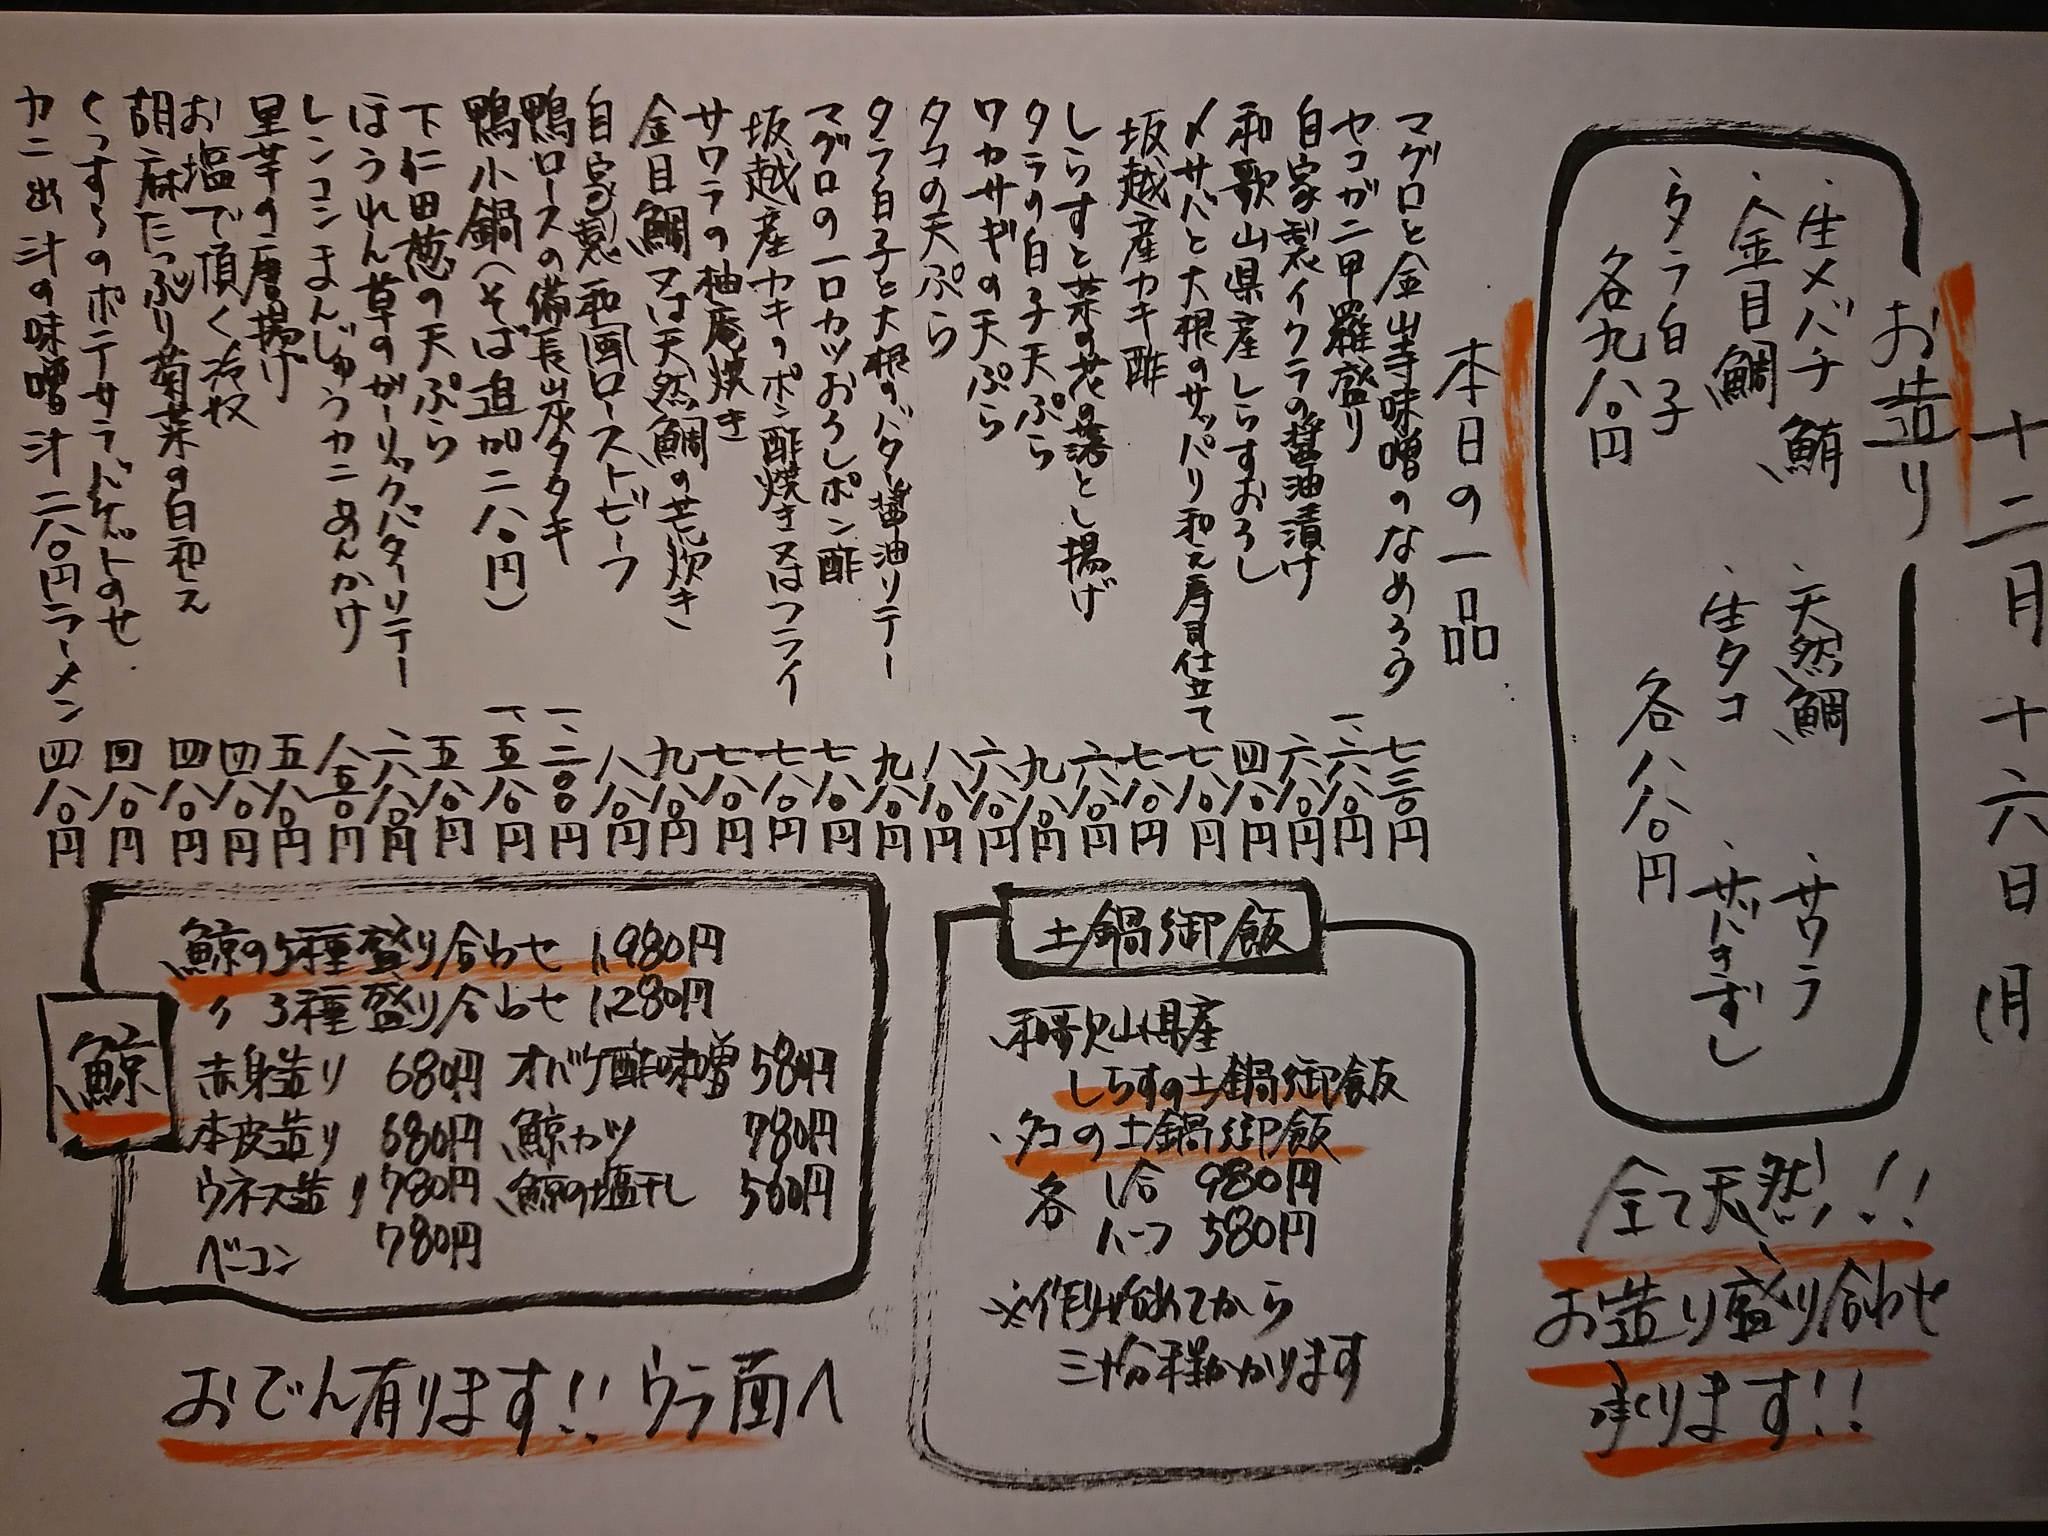 十二月十六日(月
お造り
・生メバチ鮪
・天然鯛
・サワラ
・金目鯛
・生タコ
・サバきずし
・タラ白子
各九八〇円
各八八〇円
全て天然!!
お造り盛り合わせ
承ります!!
本日の一品
マグロと金山寺味噌のなめろう 七三〇円
セコガニ甲羅盛り 一、六八〇円
自家製イクラの醤油漬け 六八〇円
和歌山県産しらすおろし 四八〇円
〆サバと大根のサッパリ和え寿司仕立て 七八〇円
坂越産カキ酢 七八〇円
しらすと菜の花の落とし揚げ 六八〇円
タラの白子天ぷら 九八〇円
ワカサギの天ぷら 六八〇円
タコの天ぷら 八八〇円
タラ白子と大根のバター醤油ソテー 九八〇円
マグロの一口カツおろしポン酢 七八〇円
坂越産カキのポン酢焼き又はフライ 七八〇円
サワラの柚庵焼き 七八〇円
金目鯛又は天然鯛の荒炊き 九八〇円
自家製和風ローストビーフ 八八〇円
鴨ロースの備長炭タタキ 一、二〇〇円
鴨小鍋(そば追加二八〇円) 一、五八〇円
下仁田葱の天ぷら 五八〇円
ほうれん草のガーリックバターソテー 六八〇円
レンコンまんじゅうカニあんかけ 八五〇円
里芋の唐揚げ 五八〇円
お塩で頂く冷奴 四八〇円
胡麻たっぷり菊菜の白和え 四八〇円
くっすんのポテサラバゲットのせ 四八〇円
カニ出汁の味噌汁二八〇円ラーメン 四八〇円
土鍋御飯
・和歌山県産
しらすの土鍋御飯
・タコの土鍋御飯
各 1合 980円
ハーフ 580円
※作り始めてから
三十分程かかります
鯨
・鯨の5種盛り合わせ 1,980円
〃 3種盛り合わせ 1,280円
赤身造り 680円 オバケ酢味噌 580円
本皮造り 680円 鯨カツ 780円
ウネス造り 780円 鯨の塩干し 560円
ベーコン 780円
おでん有ります!! ウラ面へ